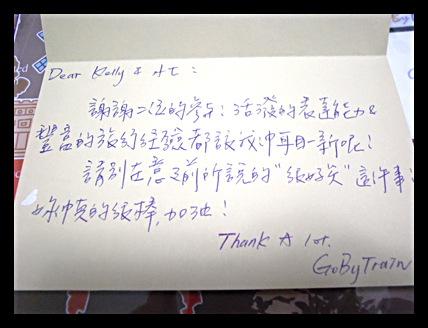 Dear Kelly & A七：
謝謝二位的參与！活潑的表達能力&
豐富的旅行經驗都讓我沖耳目一新呢！
請別在意之前所說的"很好笑"這件事！
妳沖真的很棒,加油！
Thank A lot.
GoByTrain